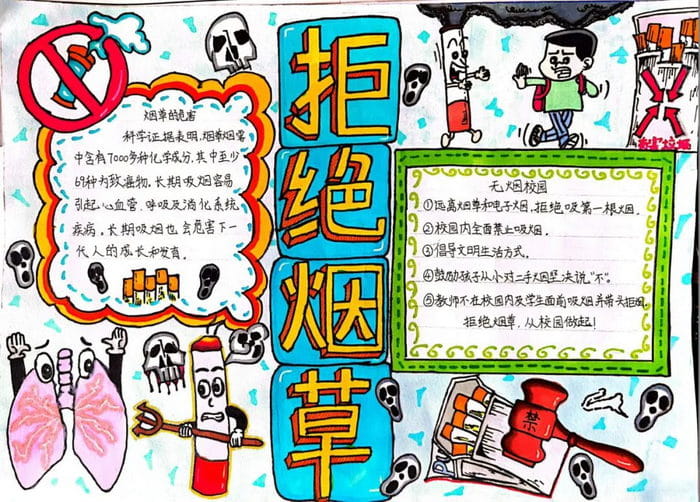 拒绝烟草
烟草的危害
科学证据表明，烟草烟雾
中含有7000多种化学成分，其中至少
69种为致癌物。长期吸烟容易
引起心血管、呼吸及消化系统
疾病。长期吸烟也会危害下一
代人的成长和发育。
无烟校园
①远离烟草和电子烟，拒绝吸第一根烟。
②校园内全面禁止吸烟。
③倡导文明生活方式。
④鼓励孩子从小对二手烟坚决说“不”。
⑤教师不在校园内及学生面前吸烟并带头拒烟。
拒绝烟草，从校园做起！
禁